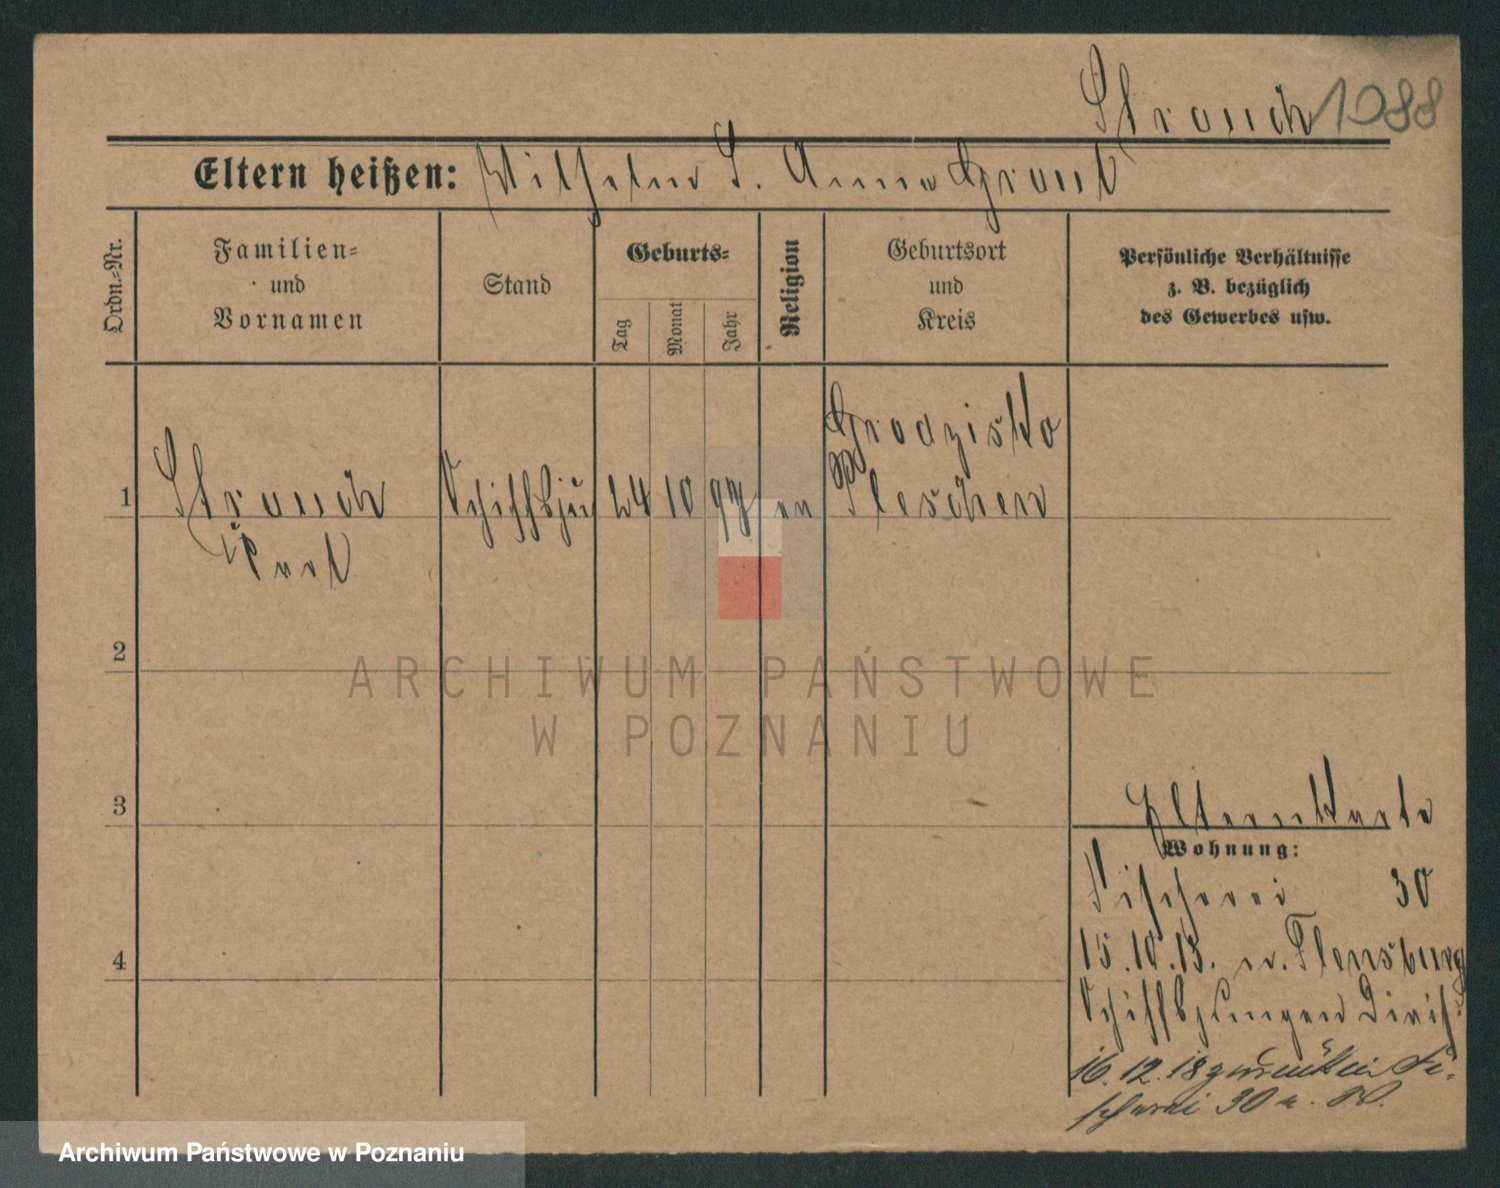 Strauch 1088
Eltern heißen: Wilhelm S. Anna
Ordn.-Nr.
Familien-
und
Vornamen
Stand
Geburts-
Tag
Monat
Jahr
Religion
Geburtsort
und
Kreis
Persönliche Verhältnisse
z. B. bezüglich
des Gewerbes usw.
Grodzisko
1 Strauch Schiffsju 24 10 97 ev Pleschen
Kurt
2
ARCHIWUM PAŃSTWOWE
W POZNANIU
3
Elternkarte
Wohnung:
Fischerei 30
4
15.10.13. n. Flensburg
Schiffsjungen Divis.
16.12.18 zurück in Fi-
scherei 30 a. W.
Archiwum Państwowe w Poznaniu